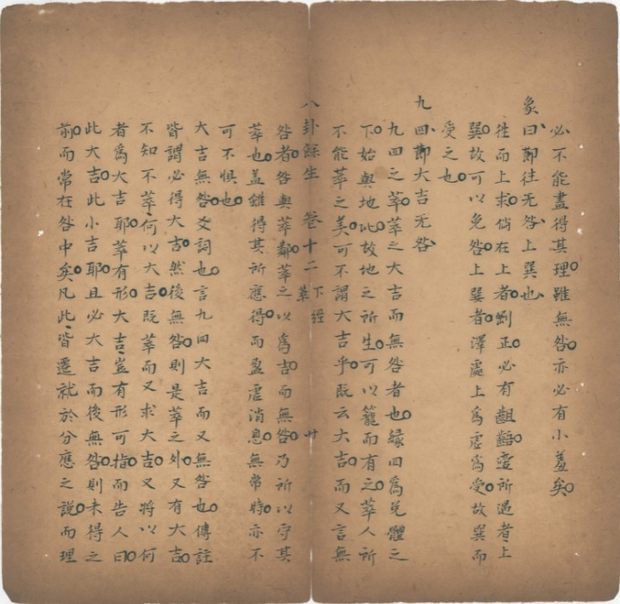 必不能盡得其理雖無咎亦必有小羞矣
象曰卽往无咎上巽也
徃而上求倘在上者剛正必有齟齬所遇者上
巽故可以免咎上巽者澤處上爲虛爲受故巽而
受之也
九四卽大吉无咎
九四之萃萃之大吉而無咎者也緣四爲兌體之
下始與地比故地之所生可以籠而有之萃人所
不能萃之美可不謂大吉乎既云大吉而又言無
八卦餘生 卷十二 下經 萃 廿
咎者咎與萃鄰萃之以爲吉而無咎乃所以守其
萃也蓋雖得其所應得而盈虛消息無常時亦不
可不惧也
大吉無咎爻詞也言九四大吉而又無咎也傳註
皆謂必得大吉然後無咎則是萃之外又有大吉
不知不萃何以大吉既萃而又求大吉又將以何
者爲大吉耶萃有形大吉豈有形可指而告人曰
此大吉此小吉耶且必大吉而後無咎則未得之
前而常在咎中矣凡此皆遷就於分應之說而理